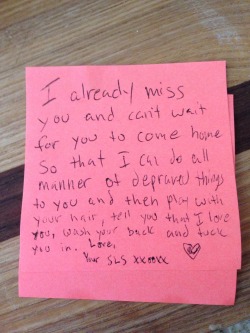 I already miss
you and can't wait
for you to come home
so that I can do all
manner of depraved things
to you and then play with
your hair, tell you that I love
you, wash your back and tuck
you in. Love,
Your SLS xxoxx